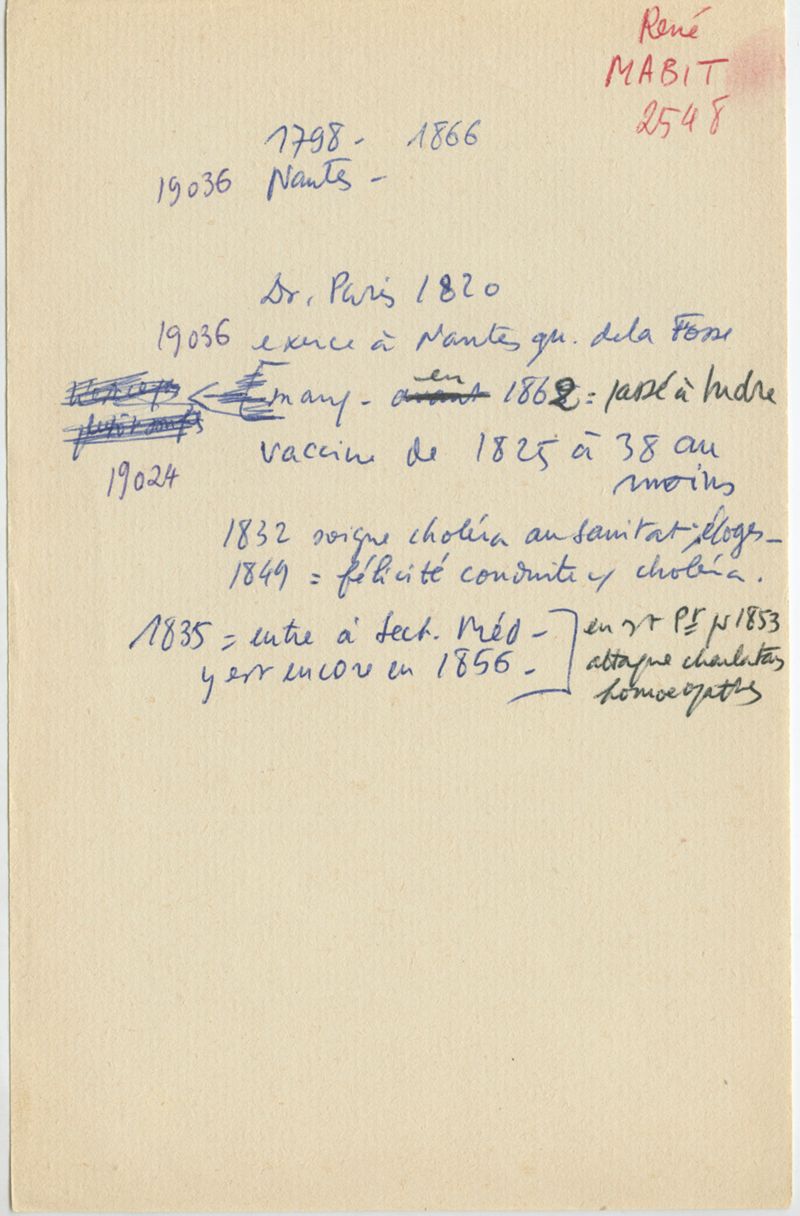 René
MABIT
2548
1798 - 1866
19036 Nantes -
Dr. Paris 1820
19036 exerce à Nantes qu. de la Fosse
en
avant 1862 = passé à Indre
vaccine de 1825 à 38 au
moins
19024
1832 soigne choléra au Sanitat : éloges -
1849 = félicité conduite choléra.
1835 = entre à Sect. Méd -
y est encore en 1856 -
en est Pt 1853
attaque charlatans
homoeopathes